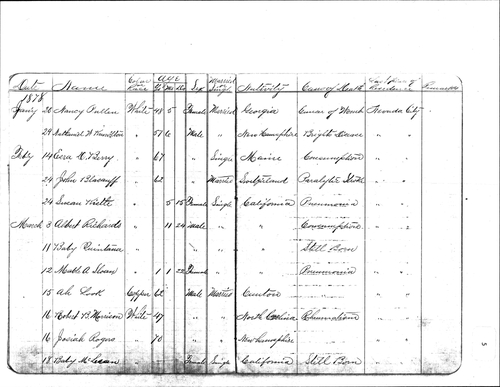 Date Name Color Race AGE Y Ms Ds Sex Married Single Nativity Cause of Death Residence Remarks
1878
Jany 26 Nancy Pullen White 48 5 Female Married Georgia Cancer of Womb Nevada City
29 Nathaniel W Hamilton " 57 6 Male " New Hampshire Bright " "
Feby 14 Ezra K. Berry " 67 " Single Maine Consumption " "
24 John " 62 " Married Switzerland Paralytic Stroke " "
24 Susan " 5 15 Female Single California Pneumonia " "
March 3 Albert Richards " 11 24 Male " " Consumption " "
11 Baby Quintana " " " " Still Born " "
12 A. Sloan " 1 1 22 Female " " Pneumonia " "
15 Ah Look Copper 62 Male Married Canton " "
16 Robert B. Morrison White 47 " " North Carolina Rheumatism " "
16 Josiah Rogers " 70 " " New Hampshire " "
18 Baby McLean " Female Single California Still Born " "